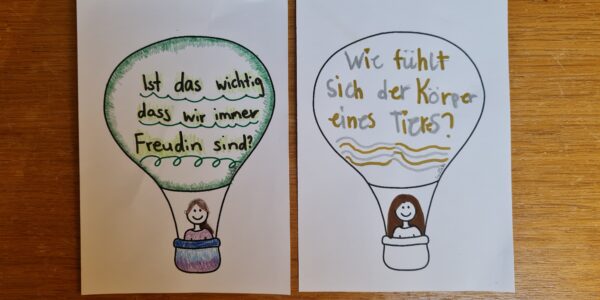 Ist das wichtig
dass wir immer
Freudin sind?
Wie fühlt
sich der Körper
eines Tieres?